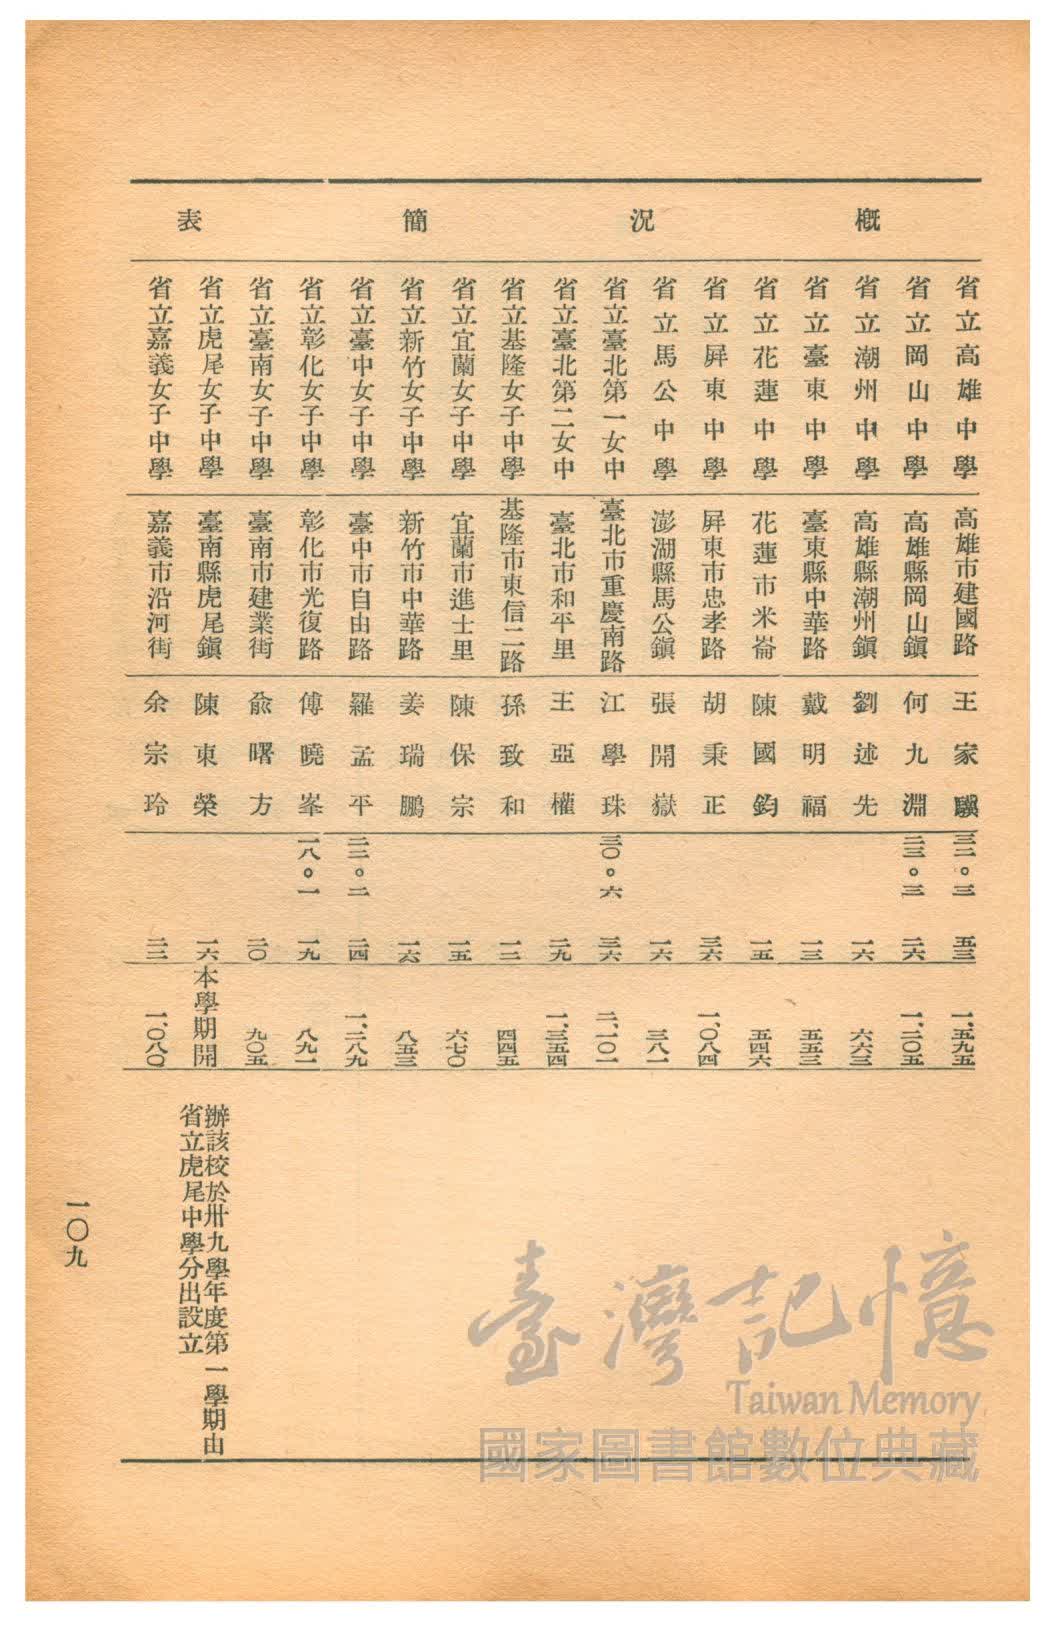 概況簡表
省立高雄中學 高雄市建國路 王家驥 三二。三 五三 一、五九五
省立岡山中學 高雄縣岡山鎮 何九淵 二三。三 二六 一、二〇五
省立潮州中學 高雄縣潮州鎮 劉述先 一六 六六三
省立臺東中學 臺東縣中華路 戴明福 一三 五五三
省立花蓮中學 花蓮市米崙 陳國鈞 一五 五四六
省立屏東中學 屏東市忠孝路 胡秉正 二六 一、〇八四
省立馬公中學 澎湖縣馬公鎮 張開嶽 一六 三八一
省立臺北第一女中 臺北市重慶南路 江學珠 三〇。六 三六 二、一〇一
省立臺北第二女中 臺北市和平里 王亞權 二九 一、三五四
省立基隆女子中學 基隆市東信二路 孫致和 一二 四四五
省立宜蘭女子中學 宜蘭市進士里 陳保宗 一五 六七〇
省立新竹女子中學 新竹市中華路 姜瑞鵬 一六 八五三
省立臺中女子中學 臺中市自由路 羅孟平 二二。二 二四 一、二八九
省立彰化女子中學 彰化市光復路 傅曉峯 一八。一 一九 八九一
省立臺南女子中學 臺南市建業街 俞曙方 二〇 九〇五
省立虎尾女子中學 臺南縣虎尾鎮 陳東榮 一六 本學期開
辦該校於卅九學年度第一學期由
省立虎尾中學分出設立
省立嘉義女子中學 嘉義市沿河街 余宗玲 二二 一、〇八〇
一〇九
臺灣記憶
Taiwan Memory
國家圖書館數位典藏